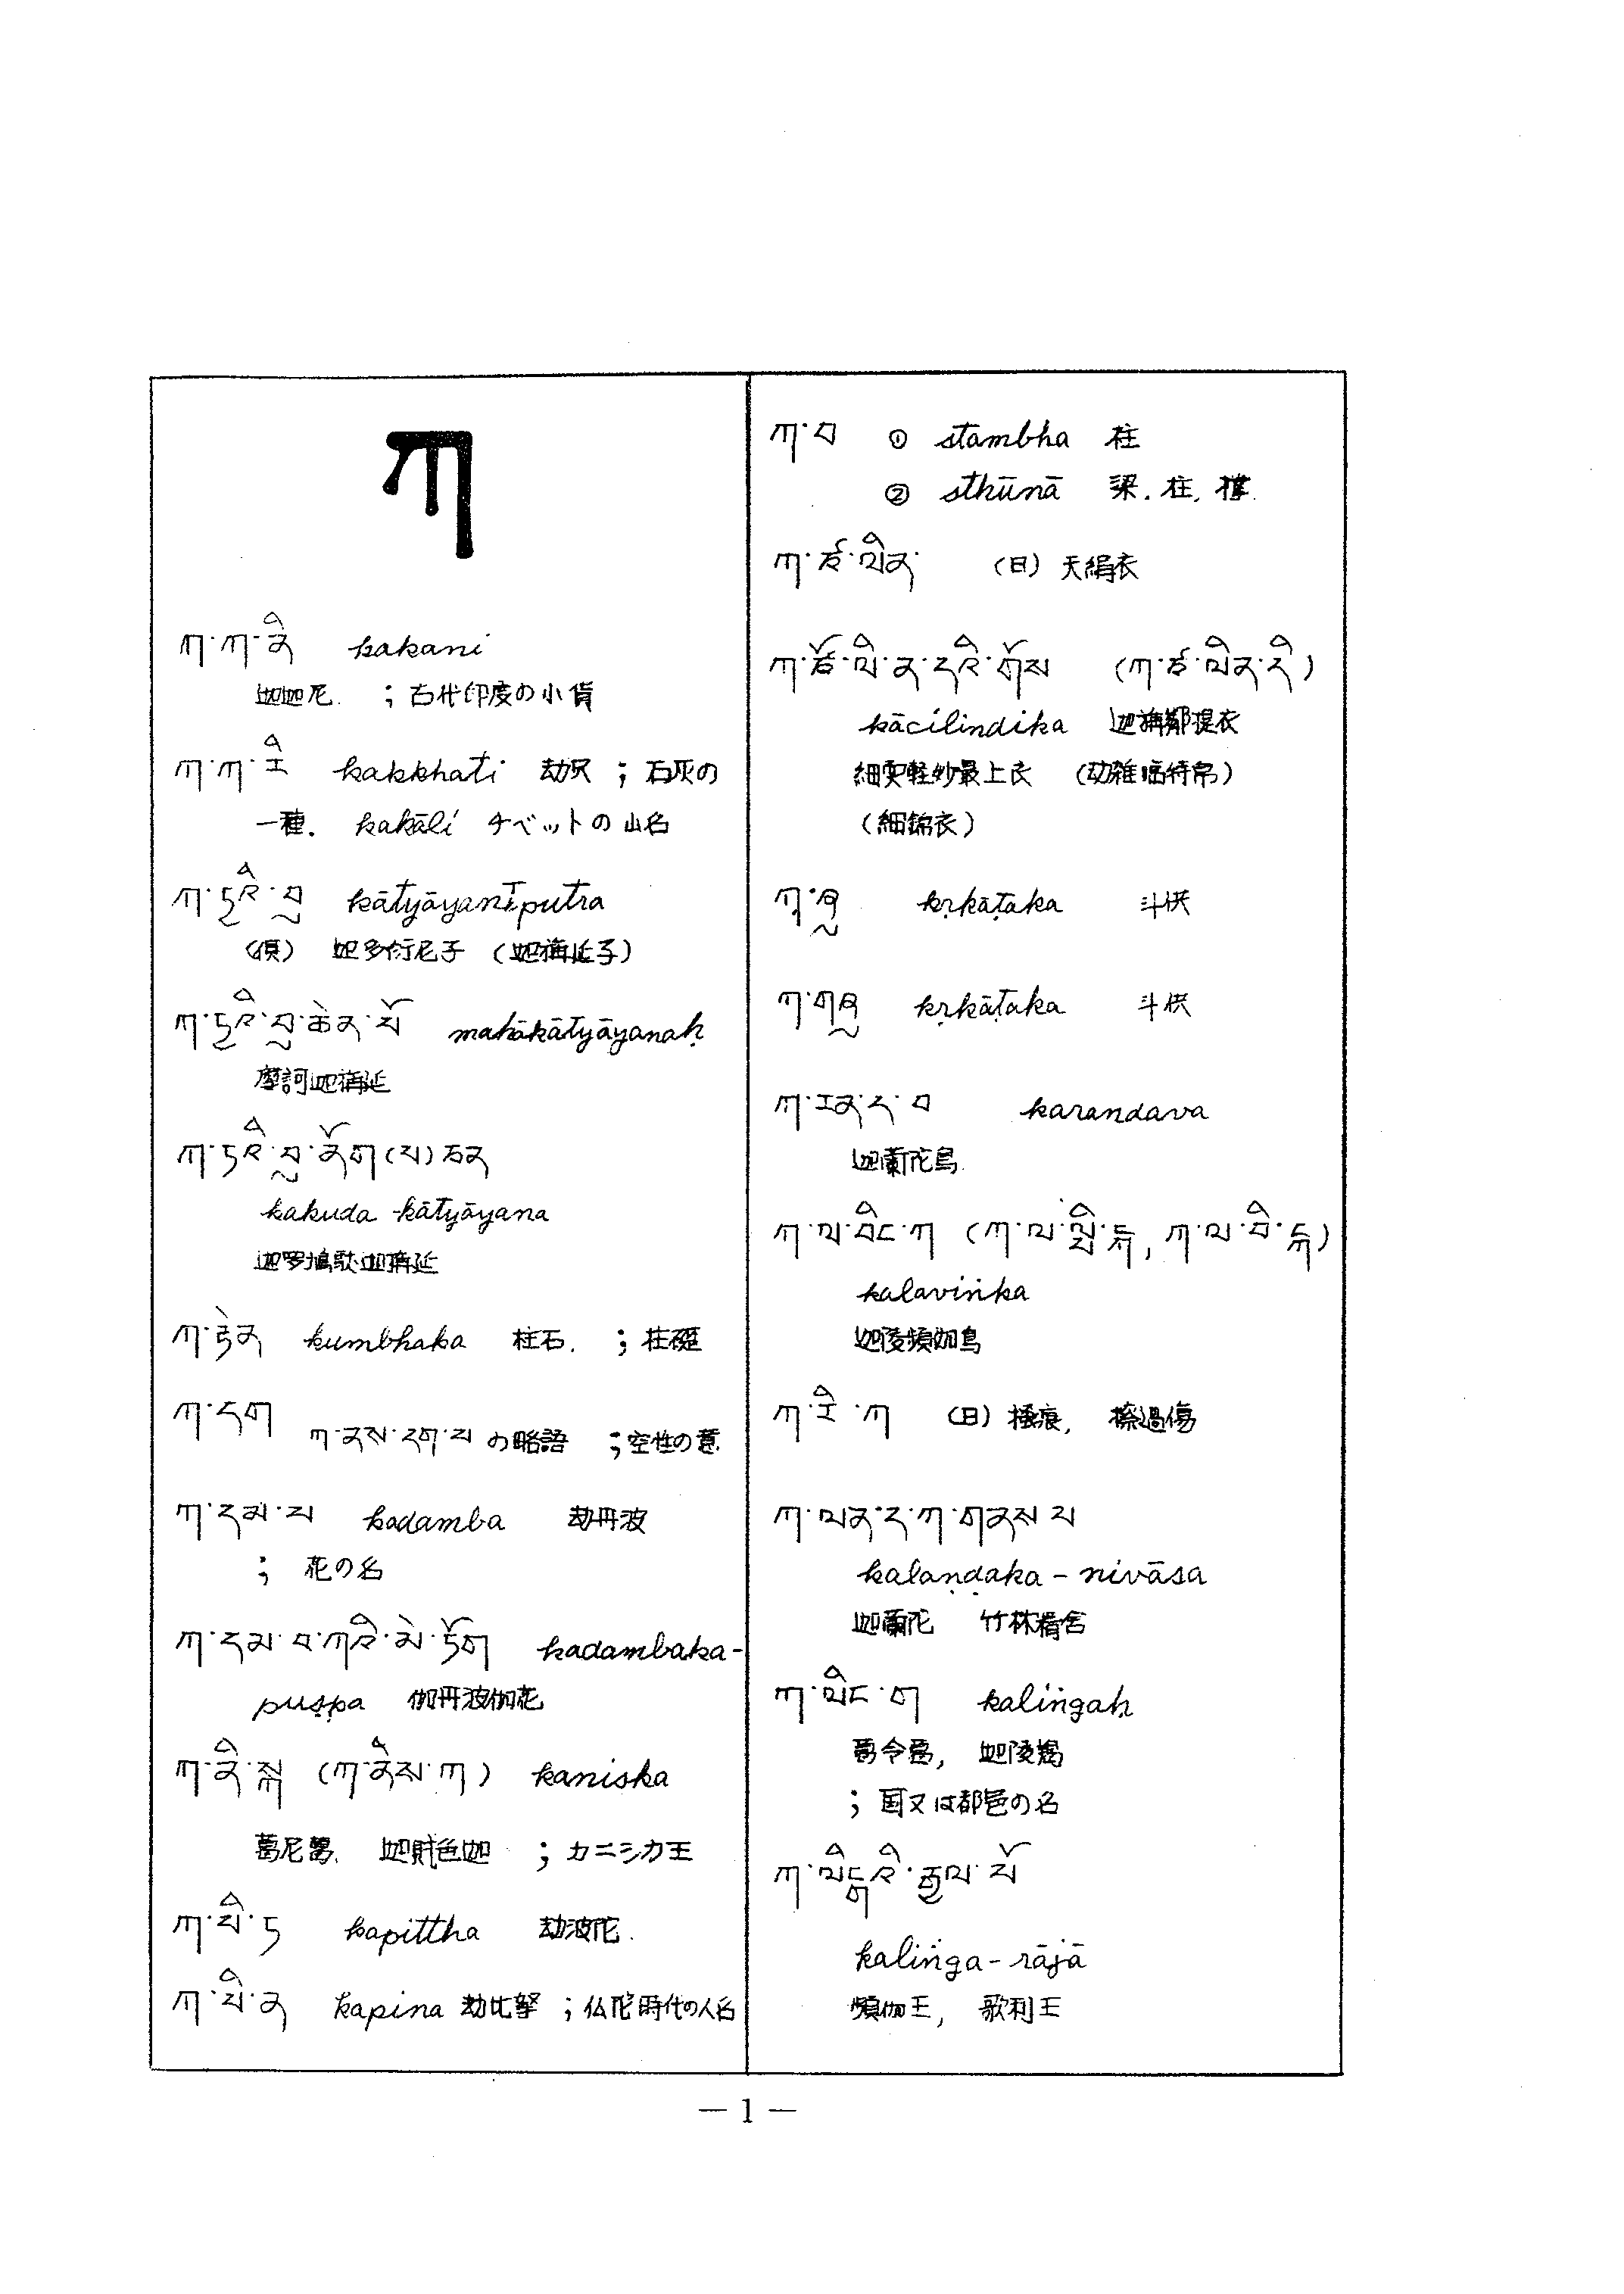 ཀ
ཀ་ཀ་ནི kakani
迦迦尼. ；古代印度の小貨
ཀ་ཀ་ཊི kakkhati 劫尺；石灰の
一種. kakāli チベットの山名
ཀ་ཏྱཱའི་བུ kātyāyanīputra
迦多衍尼子（迦旃延子）
ཀ་ཏྱའི་བུ་ཆེན་པོ mahākātyāyanaḥ
摩訶迦旃延
ཀ་ཏའི་བུ་ནོག(པ)ཅན
kakuda-kātyāyana
迦旃延
ཀ་རྟེན kumbhaka 柱石. ；柱礎
ཀ་དག
ཀ་ནས་དག་པの略語 ；空性の意
ཀ་དམ་པ kadamba 劫丹波
； 花の名
ཀ་དམ་པ་ཀའི་མེ་ཏོག kadambaka-
puṣpa 伽丹波伽花
ཀ་ནི་སྐ (ཀ་ནིས་ཀ) kaniska
葛尼葛. 迦貳色迦 ；カニシカ王
ཀ་པི་ཏ kapittha 劫波陀.
ཀ་པི་ན kapina 劫比拏；仏陀時代の人名
ཀ་བ ① stambha 柱
② sthūnā 梁. 柱. 橕.
ཀ་ཙ་ལིན་ （日）天絹衣
ཀ་ཙོ་ལི་ན་དའི་གོས (ཀ་ཙ་ལིན་དི)
kācilindika 迦旃鄰提衣
細耎軽妙最上衣
（細錦衣）
ཀ་ཞུ kṛkāṭaka 斗栱
ཀ་གཞུ kṛkāṭaka 斗栱
ཀ་རན་ད་བ karandava
迦蘭陀鳥.
ཀ་ལ་བིང་ཀ
kalaviṅka
迦陵頻伽鳥
ཀ་རི་ཀ （日）搔痕, 擦過傷
ཀ་ལན་ད་ཀ་གནས་པ
kalaṇḍaka-nivāsa
迦蘭陀 竹林精舎
ཀ་ལིང་ག kaliṅgaḥ
葛令葛, 迦陵羯
；国又は都邑の名
ཀ་ལིངྒའི་རྒྱལ་པོ
kaliṅga-rājā
頻伽王, 歌利王
— 1 —